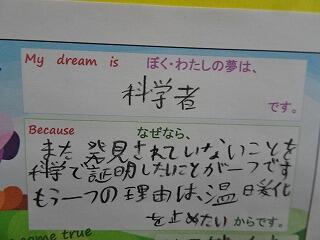 My dream is ぼく・わたしの夢は、
科学者
です。
Because なぜなら、
まだ発見されていないことを
科学で証明したいことが一つです
もう一つの理由は、温暖化
を止めたい からです。
me true